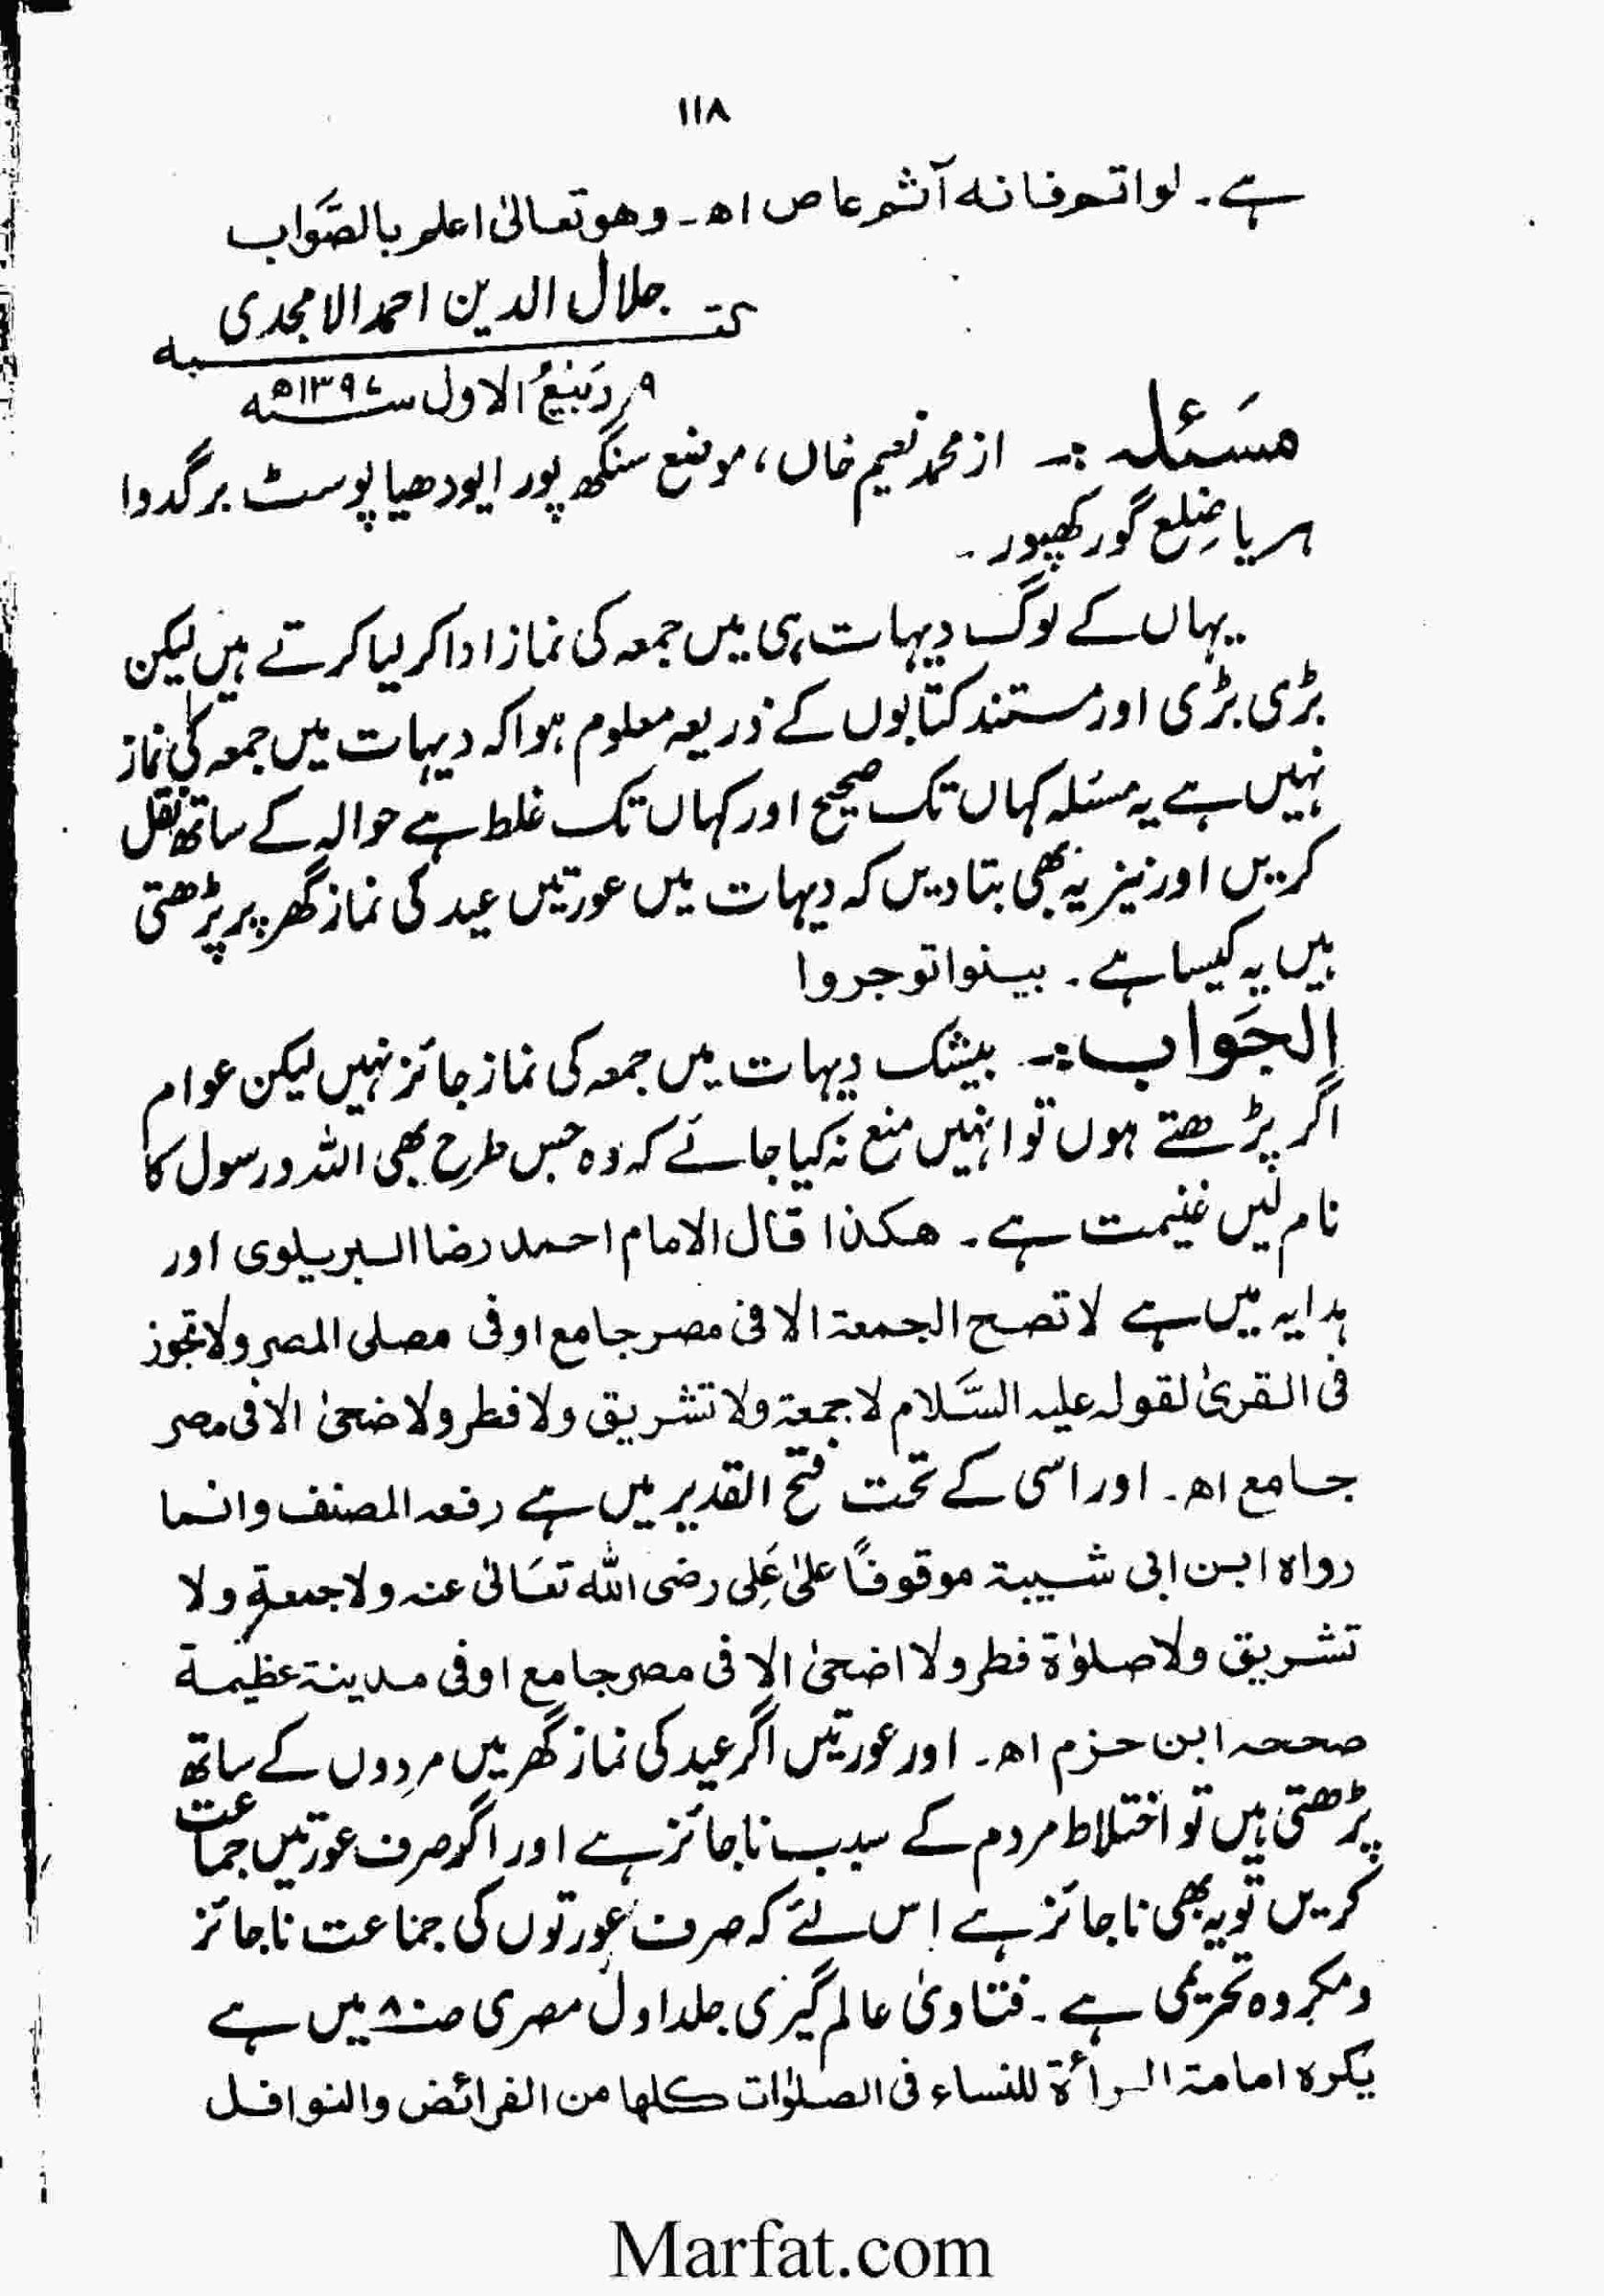 ۱۱۸
ہے۔ لواتحرفانہ آثم عاص اھ۔ وھو تعالیٰ اعلم بالصَّواب
جلال الدین احمد الامجدی
کتبہ
۹ر رَبیعُ الاول ۱۳۹۷ھ
مَسَئلہ :۔ از محمد نعیم خاں، موضع سنگھ پور ایودھیا پوسٹ برگدوا
ہریا ضِلع گورکھپور۔
یہاں کے لوگ دیہات ہی میں جمعہ کی نماز ادا کر لیا کرتے ہیں لیکن
بڑی بڑی اور مستند کتابوں کے ذریعہ معلوم ہوا کہ دیہات میں جمعہ کی نماز
نہیں ہے یہ مسئلہ کہاں تک صحیح اور کہاں تک غلط ہے حوالہ کے ساتھ نقل
کریں اور نیز یہ بھی بتا دیں کہ دیہات میں عورتیں عید کی نماز گھر پر پڑھتی
ہیں یہ کیسا ہے۔ بینوا توجروا
الجَواب :۔ بیشک دیہات میں جمعہ کی نماز جائز نہیں لیکن عوام
اگر پڑھتے ہوں تو انہیں منع نہ کیا جائے کہ وہ جس طرح بھی اللہ و رسول کا
نام لیں غنیمت ہے۔ ھکذا قال الامام احمد رضا البریلوی اور
ہدایہ میں ہے لا تصح الجمعۃ الا فی مصر جامع او فی مصلی المصر ولا تجوز
فی القریٰ لقولہ علیہ السَّلام لا جمعۃ ولا تشریق ولا فطر ولا ضحیٰ الا فی مصر
جامع اھ۔ اور اسی کے تحت فتح القدیر میں ہے رفعہ المصنف وانما
رواہ ابن ابی شیبۃ موقوفًا علیٰ عَلِی رضی اللہ تعَالیٰ عنہ ولا جمعۃ ولا
تشریق ولا صلوٰۃ فطر ولا اضحیٰ الا فی مصر جامع او فی مدینۃ عظیمۃ
صححہ ابن حزم اھ۔ اور عورتیں اگر عید کی نماز گھر میں مردوں کے ساتھ
پڑھتی ہیں تو اختلاط مردم کے سبب ناجائز ہے اور اگر صرف عورتیں جماعت
کریں تو یہ بھی ناجائز ہے اس لئے کہ صرف عورتوں کی جماعت ناجائز
و مکروہ تحریمی ہے۔ فتاویٰ عالم گیری جلد اول مصری صـ۸۰ میں ہے
یکرہ امامۃ المرأۃ للنساء فی الصلوٰات کلھا من الفرائض والنوافل
Marfat.com